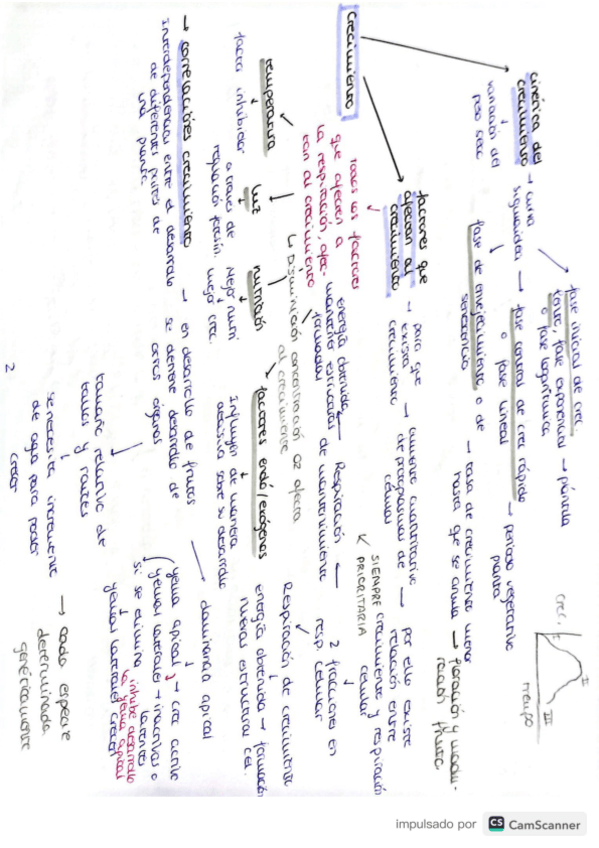 Crecimiento
cinética del
crecimiento
variación del
peso seco
→ curva
sigmoidea
→ fase inicial de creci.
lento, fase exponencial
o fase logarítmica
→ plántula
→ fase central de crec rápido
o fase lineal
→ período vegetativo
planta
fase de envejecimiento o de
senescencia
→ tasa de crecimiento menor
hasta que se anula
→ floración y madu-
ración fruto
creci.
I
II
III
tiempo
factores que
afectan al
crecimiento
→ para que
exista
crecimiento
→ aumento cuantitativo
de protoplasma de
células
→ por ello existe
relación entre
crecimiento y respiración
celular
SIEMPRE
PRIORITARIA
2 fracciones en
resp. celular
Respiración
de mantenimiento
energía obtenida
mantener estructuras
formadas
Respiración de crecimiento
energía obtenida → formación
nuevas estructuras cel.
todos los factores
que afectan a
la respiración, afec-
tan al crecimiento
↳ Disminución concentración O2 afecta
al crecimiento
temperatura
factor inhibidor
luz
a través de
regulación fotosín.
nutrición
Mejor nutri
mejor crec.
factores endó/exógenos
Influyen de manera
decisiva sobre su desarrollo
→ correlaciones crecimiento
Interdependencias entre el desarrollo
de diferentes partes de
una planta
→ en desarrollo de frutos
se detiene desarrollo de
otros órganos
dominancia apical
yema apical → crec activo
yemas laterales → inactivas o
latentes
inhibe desarrollo
si se elimina la yema apical
yemas laterales crecen
tamaño relativo de
tallos y raíces
se necesita incremento
de agua para poder
crecer
→ cada especie
determinada
genéticamente
2
impulsado por CS CamScanner